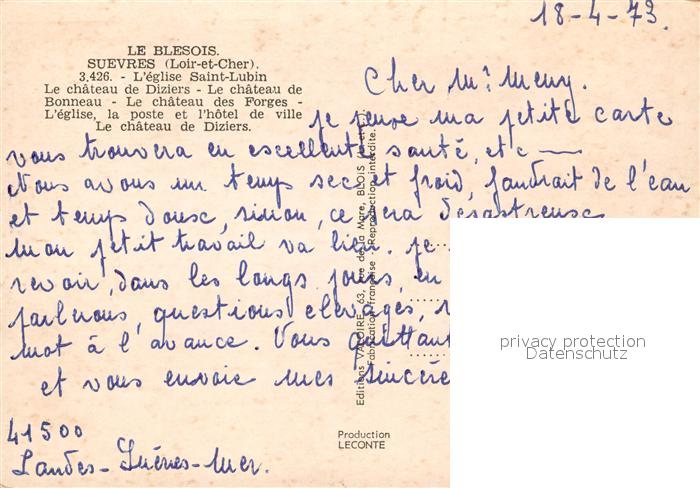 18-4-73.
LE BLESOIS.
SUEVRES (Loir-et-Cher).
3.426. - L'église Saint-Lubin
Le château de Diziers - Le château de
Bonneau - Le château des Forges -
L'église, la poste et l'hôtel de ville
Le château de Diziers.
Cher Mr
je pense ma petite carte
vous trouvera en excellente santé, etc
Nous avons un temps sec et froid, faudrait de l'eau
et temps dousc, sinon, ce sera désastreusc
mon petit travail va bien. je
revoir, dans les longs jours, en
parlerons, questions elevages,
mot à l'avance. Vous quittant
et vous envoie mes sincère
41500
Landes-
Editions VALOIRE, 63, rue de la Mare, BLOIS
Fabrication française - Reproduction interdite.
Production
LECONTE
privacy protection
Datenschutz